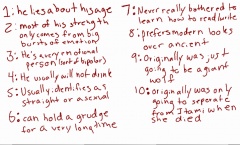 1: he lies about his age
2: most of his strength
only comes from big
bursts of emotions
3: He's a very emotional
person (sort of bipolar)
4: He usually will not drink
5: Usually identifies as
straight or asexual
6: can hold a grudge
for a very long time
7: Never really bothered to
learn how to read/write
8: prefers modern looks
over ancient
9: Originally was just
going to be a giant
wolf
10: originally was only
going to seperate
from Itami when
she died